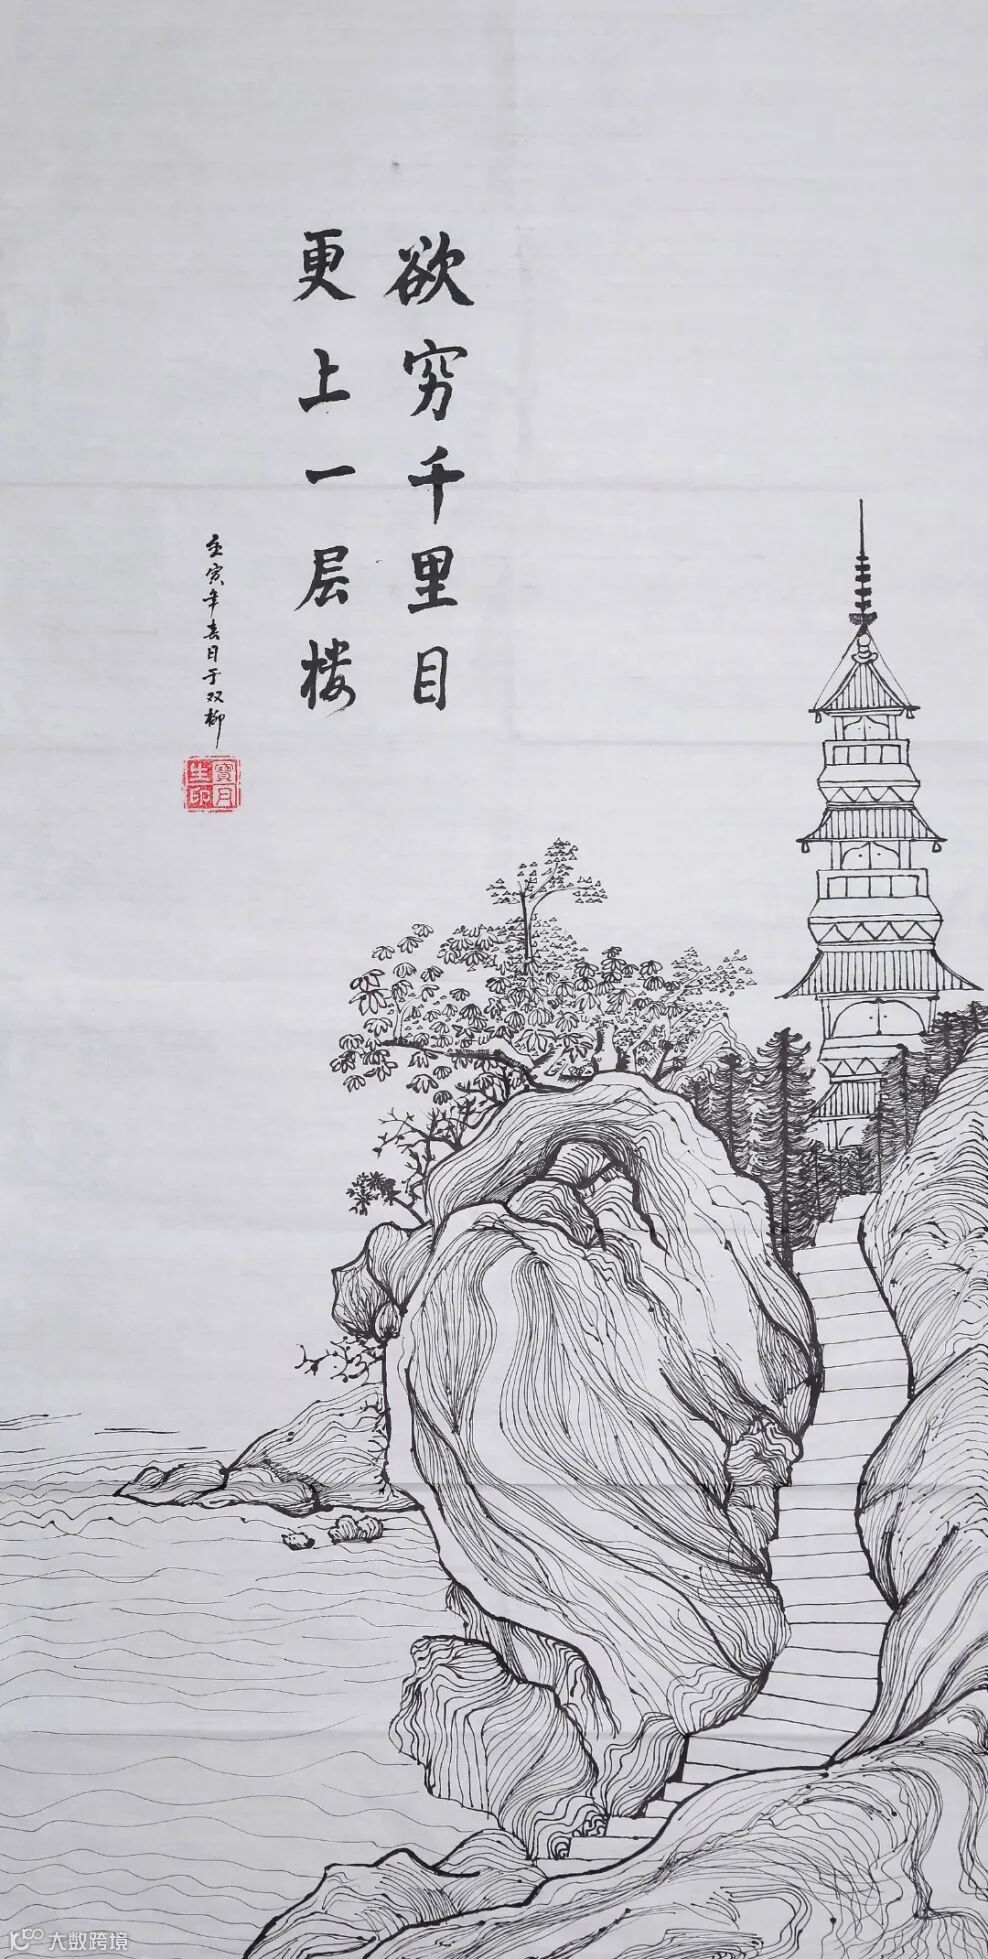 欲穷千里目
更上一层楼
壬寅年春日于双柳
寶月
生印
大数跨境